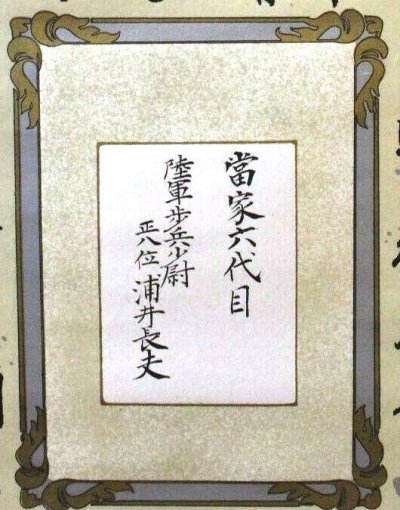 當家六代目
陸軍歩兵少尉
正八位 浦井長夫